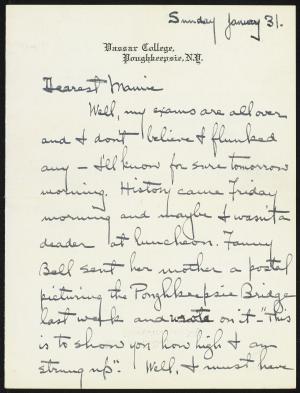 Sunday January 31.
Vassar College,
Poughkeepsie, N.Y.
Dearest Mamie
Well, my exams are all over
and I don't believe I flunked
any – I'll know for sure tomorrow
morning. History came Friday
morning and maybe I wasn't a
deader at luncheon. Fanny
Bell sent her mother a postal
picturing the Poghkeepsie Bridge
last week and wrote on it – "This
is to show you how high I am
strung up". Well, I must have